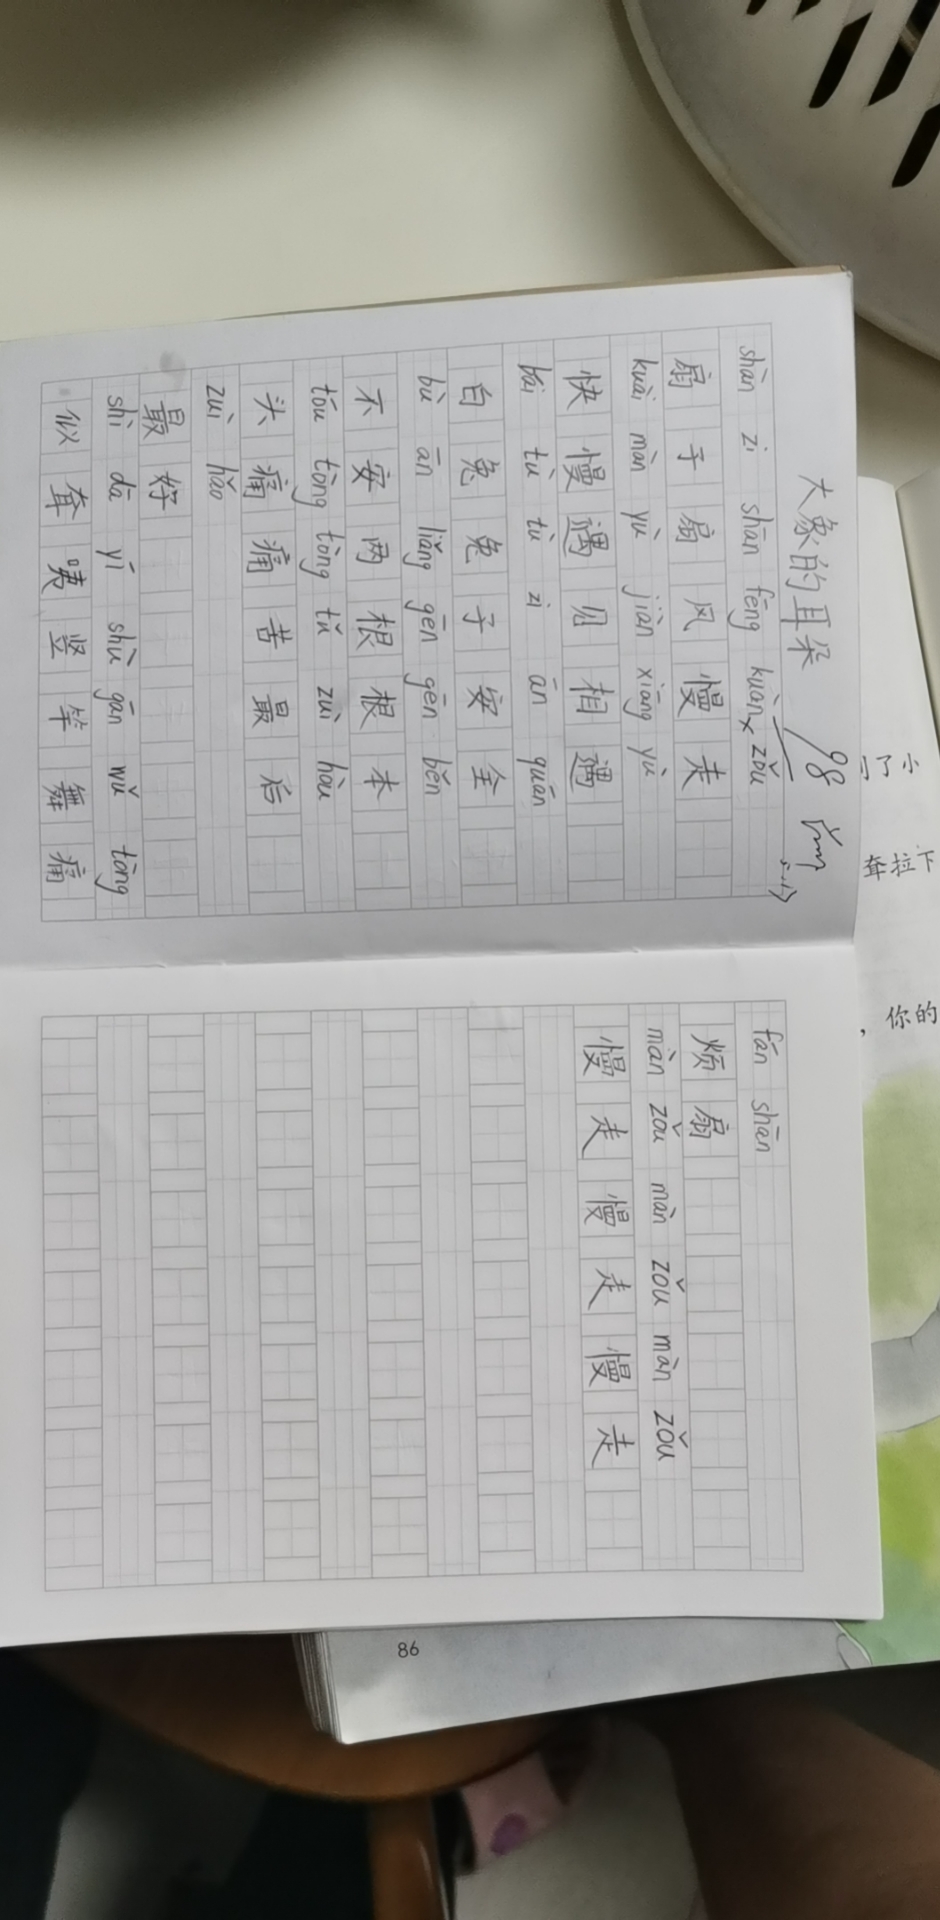 大象的耳朵
98
shàn zi shān fēng kuàn zǒu
扇子扇风慢走
kuài màn yù jiàn xiāng yù
快慢遇见相遇
bái tù tù zi ān quán
白兔兔子安全
bù ān liǎng gēn gēn běn
不安两根根本
tóu tòng tòng tǔ zuì hòu
头痛痛苦最后
zuì hǎo
最好
shì dā yí shù gān wǔ tòng
似耷咦竖竿舞痛
fán shān
烦扇
màn zǒu màn zǒu màn zǒu
慢走慢走慢走
了小
耷拉下
，你的
86